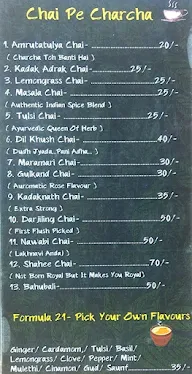 Chai Pe Charcha
1. Amrutatulya Chai- 20/-
( Charcha Toh Banti Hai )
2. Kadak Adrak Chai- 25/-
3. Lemongrass Chai- 25/-
4. Masala Chai- 25/-
( Authentic Indian Spice Blend )
5. Tulsi Chai- 25/-
( Ayurvedic Queen Of Herb )
6. Dil Khush Chai- 40/-
( Dudh Jyada, Pani Adha... )
7. Maramari Chai- 30/-
8. Gulkand Chai- 30/-
( Auromatic Rose Flavour )
9. Kadaknath Chai- 35/-
( Extra Strong )
10. Darjiling Chai- 50/-
( First Flush Picked )
11. Nawabi Chai- 50/-
( Lakhnavi Andaj )
12. Shahee Chai- 70/-
( Not Born Royal But It Makes You Royal)
13. Bahubali- 50/-
Formula 21- Pick Your Own Flavours
Ginger/ Cardamom,/ Tulsi/ Basil/
Lemongrass/ Clove/ Pepper/ Mint/
Mulethi/ Cinamon/ Gud/ Saunf 35/-